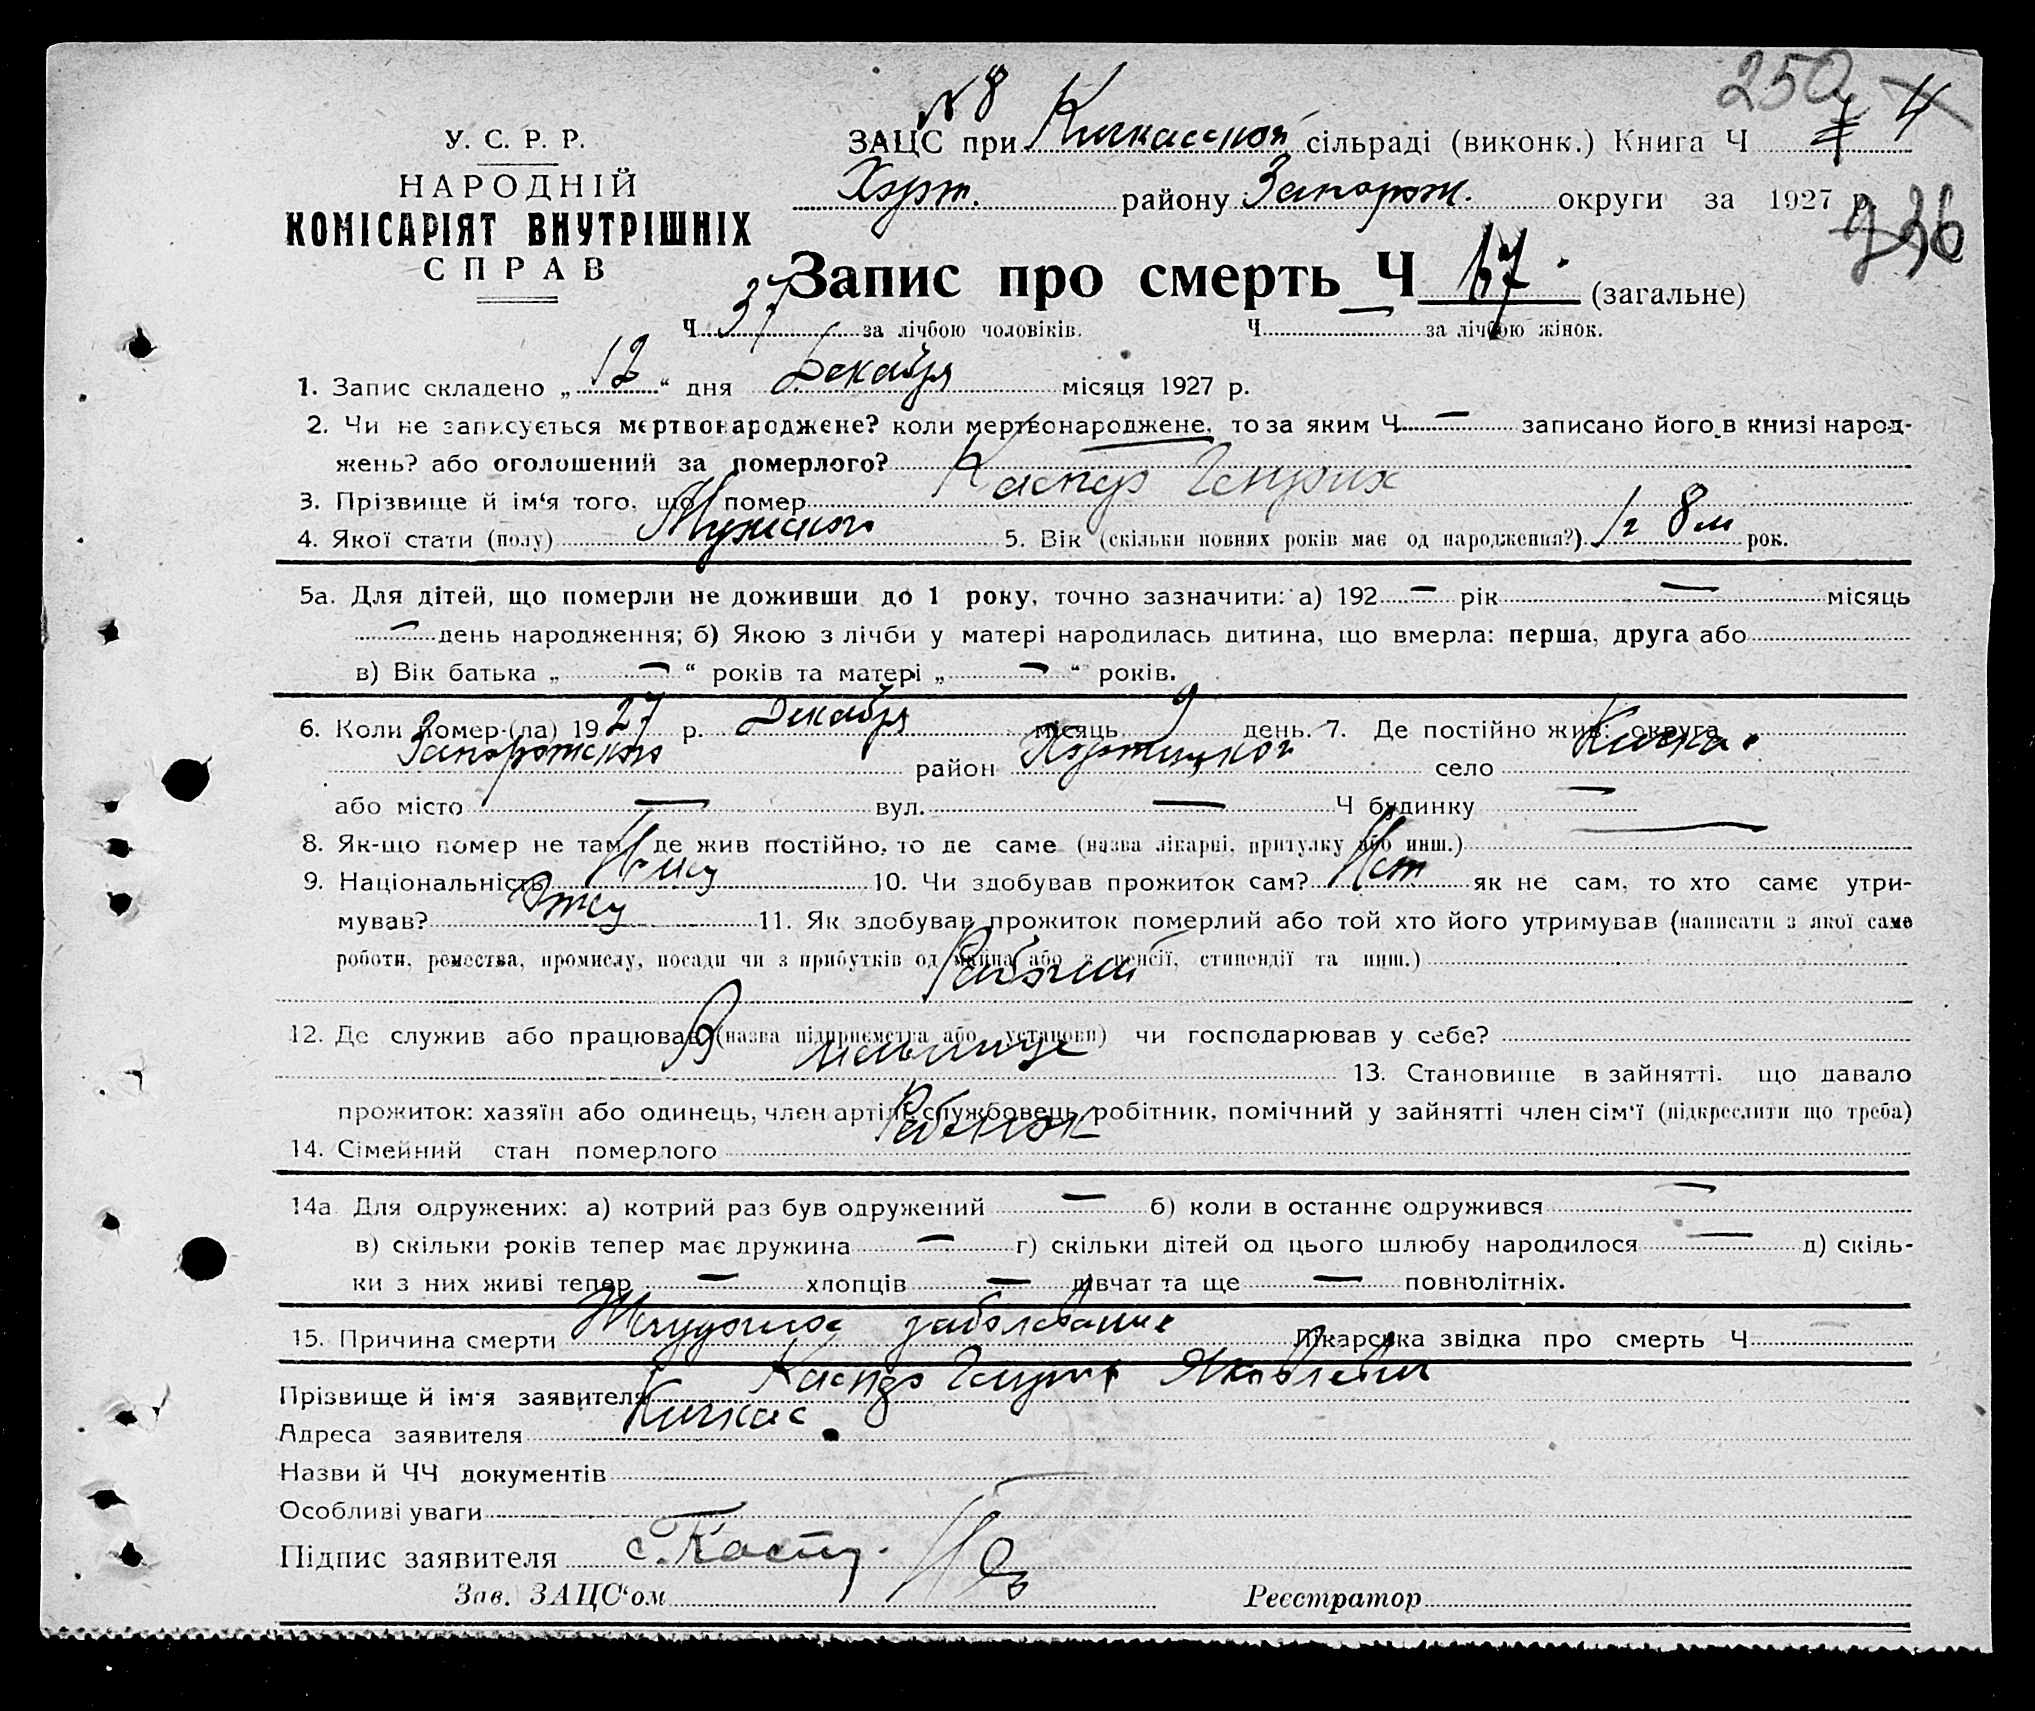 250 4
№ 8
У. С. Р. Р.
НАРОДНІЙ
КОМІСАРІЯТ ВНУТРІШНІХ
СПРАВ
ЗАЦС при Кичкасской сільраді (виконк.) Книга Ч
Хорт. району Запорож. округи за 1927 р.
Запис про смерть Ч 67. (загальне)
Ч 37 за лічбою чоловіків. Ч за лічбою жінок.
1. Запис складено „ 12 “ дня Декабря місяця 1927 р.
2. Чи не записується мертвонароджене? коли мертвонароджене, то за яким Ч — записано його в книзі народ-
жень? або оголошений за померлого?
3. Прізвище й ім‘я того, що помер Каспер Генрих
4. Якої стати (полу) Мужского 5. Вік (скільки повних років має од народження?) 1 г 8 м рок.
5а. Для дітей, що померли не доживши до 1 року, точно зазначити: а) 192 — рік — місяць
— день народження; б) Якою з лічби у матері народилась дитина, що вмерла: перша, друга або
в) Вік батька „ — “ років та матері „ — “ років.
6. Коли помер-(ла) 1927 р. Декабря місяць 9 день. 7. Де постійно жив: округа
Запорожского район Хортицкой село Кичкас
або місто — вул. — Ч будинку —
8. Як-що помер не там, де жив постійно, то де саме (назва лікарні, притулку або инш.) —
9. Національність Немец 10. Чи здобував прожиток сам? Нет як не сам, то хто саме утри-
мував? Отец 11. Як здобував прожиток померлий або той хто його утримував (написати з якої саме
роботи, ремества, промислу, посади чи з прибутків од майна або з пенсії, стипендії та инш.)
Рабочий
12. Де служив або працював (назва підприємства або установи) чи господарював у себе?
В мельнице 13. Становище в зайнятті, що давало
прожиток: хазяїн або одинець, член артілі, службовець, робітник, помічний у зайнятті член сім‘ї (підкреслити що треба)
14. Сімейний стан померлого Ребенок
14а Для одружених: а) котрий раз був одружений — б) коли в останнє одружився —
в) скільки років тепер має дружина — г) скільки дітей од цього шлюбу народилося — д) скіль-
ки з них живі тепер — хлопців — дівчат та ще — повнолітніх.
15. Причина смерти Желудочное заболевание Лікарська звідка про смерть Ч —
Прізвище й ім‘я заявителя Каспер Генрих Яковлевич
Адреса заявителя Кичкас.
Назви й ЧЧ документів —
Особливі уваги
Підпис заявителя
Зав. ЗАЦС‘ом Реєстратор